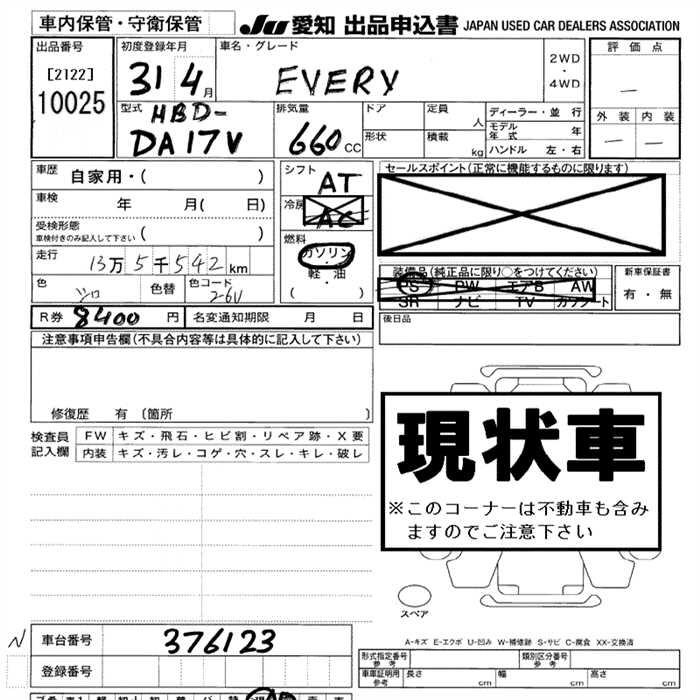 車内保管・守衛保管 JU 愛知 出品申込書 JAPAN USED CAR DEALERS ASSOCIATION
出品番号 初度登録年月 車名・グレード 評価点
[2122] 31 4月 EVERY 2WD・4WD —
10025
型式 排気量 ドア 定員 人 ディーラー・並 行 外装 内装
HBD- 形状 積載 kg モデル年式 年 — —
DA17V 660 CC ハンドル 左・右
車歴 自家用・( ) シフト AT セールスポイント(正常に機能するものに限ります)
車検 年 月( 日) 冷房 AC
受検形態 ( )
車検付きのみ記入して下さい
燃料 ガソリン・軽油 ( )
走行 13万5千542km
装備品(純正品に限り○をつけてください) 新車保証書
PS PW エアB AW 有・無
SR ナビ TV カツソート
色 シロ 色替 色コード 26U
R券 8400 円 名変通知期限 月 日 後日品
注意事項申告欄(不具合内容等は具体的に記入して下さい)
修復歴 有 〔箇所 〕
現状車
※このコーナーは不動車も含み
ますのでご注意下さい
検査員 FW キズ・飛石・ヒビ割・リペア跡・X要
記入欄 内装 キズ・汚レ・コゲ・穴・スレ・キレ・破レ
スペア
A-キズ E-エクボ U-凹み W-補修跡 S-サビ C-腐食 XX-交換済
N 車台番号 376123
登録番号
形式指定番号 参考 類別区分番号 参考
車庫証明用 参考 長さ cm 幅 cm 高さ cm